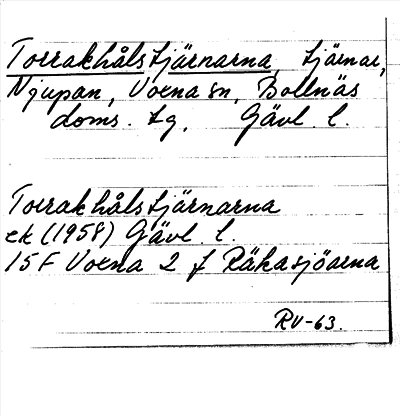 Torrakhålstjärnarna, tjärnar,
Njupan, Voxna sn, Bollnäs
doms. tg, Gävl. l.
Torrakhålstjärnarna
ek (1958) Gävl. l.
15F Voxna 2 f Räkasjöarna
RV-63.